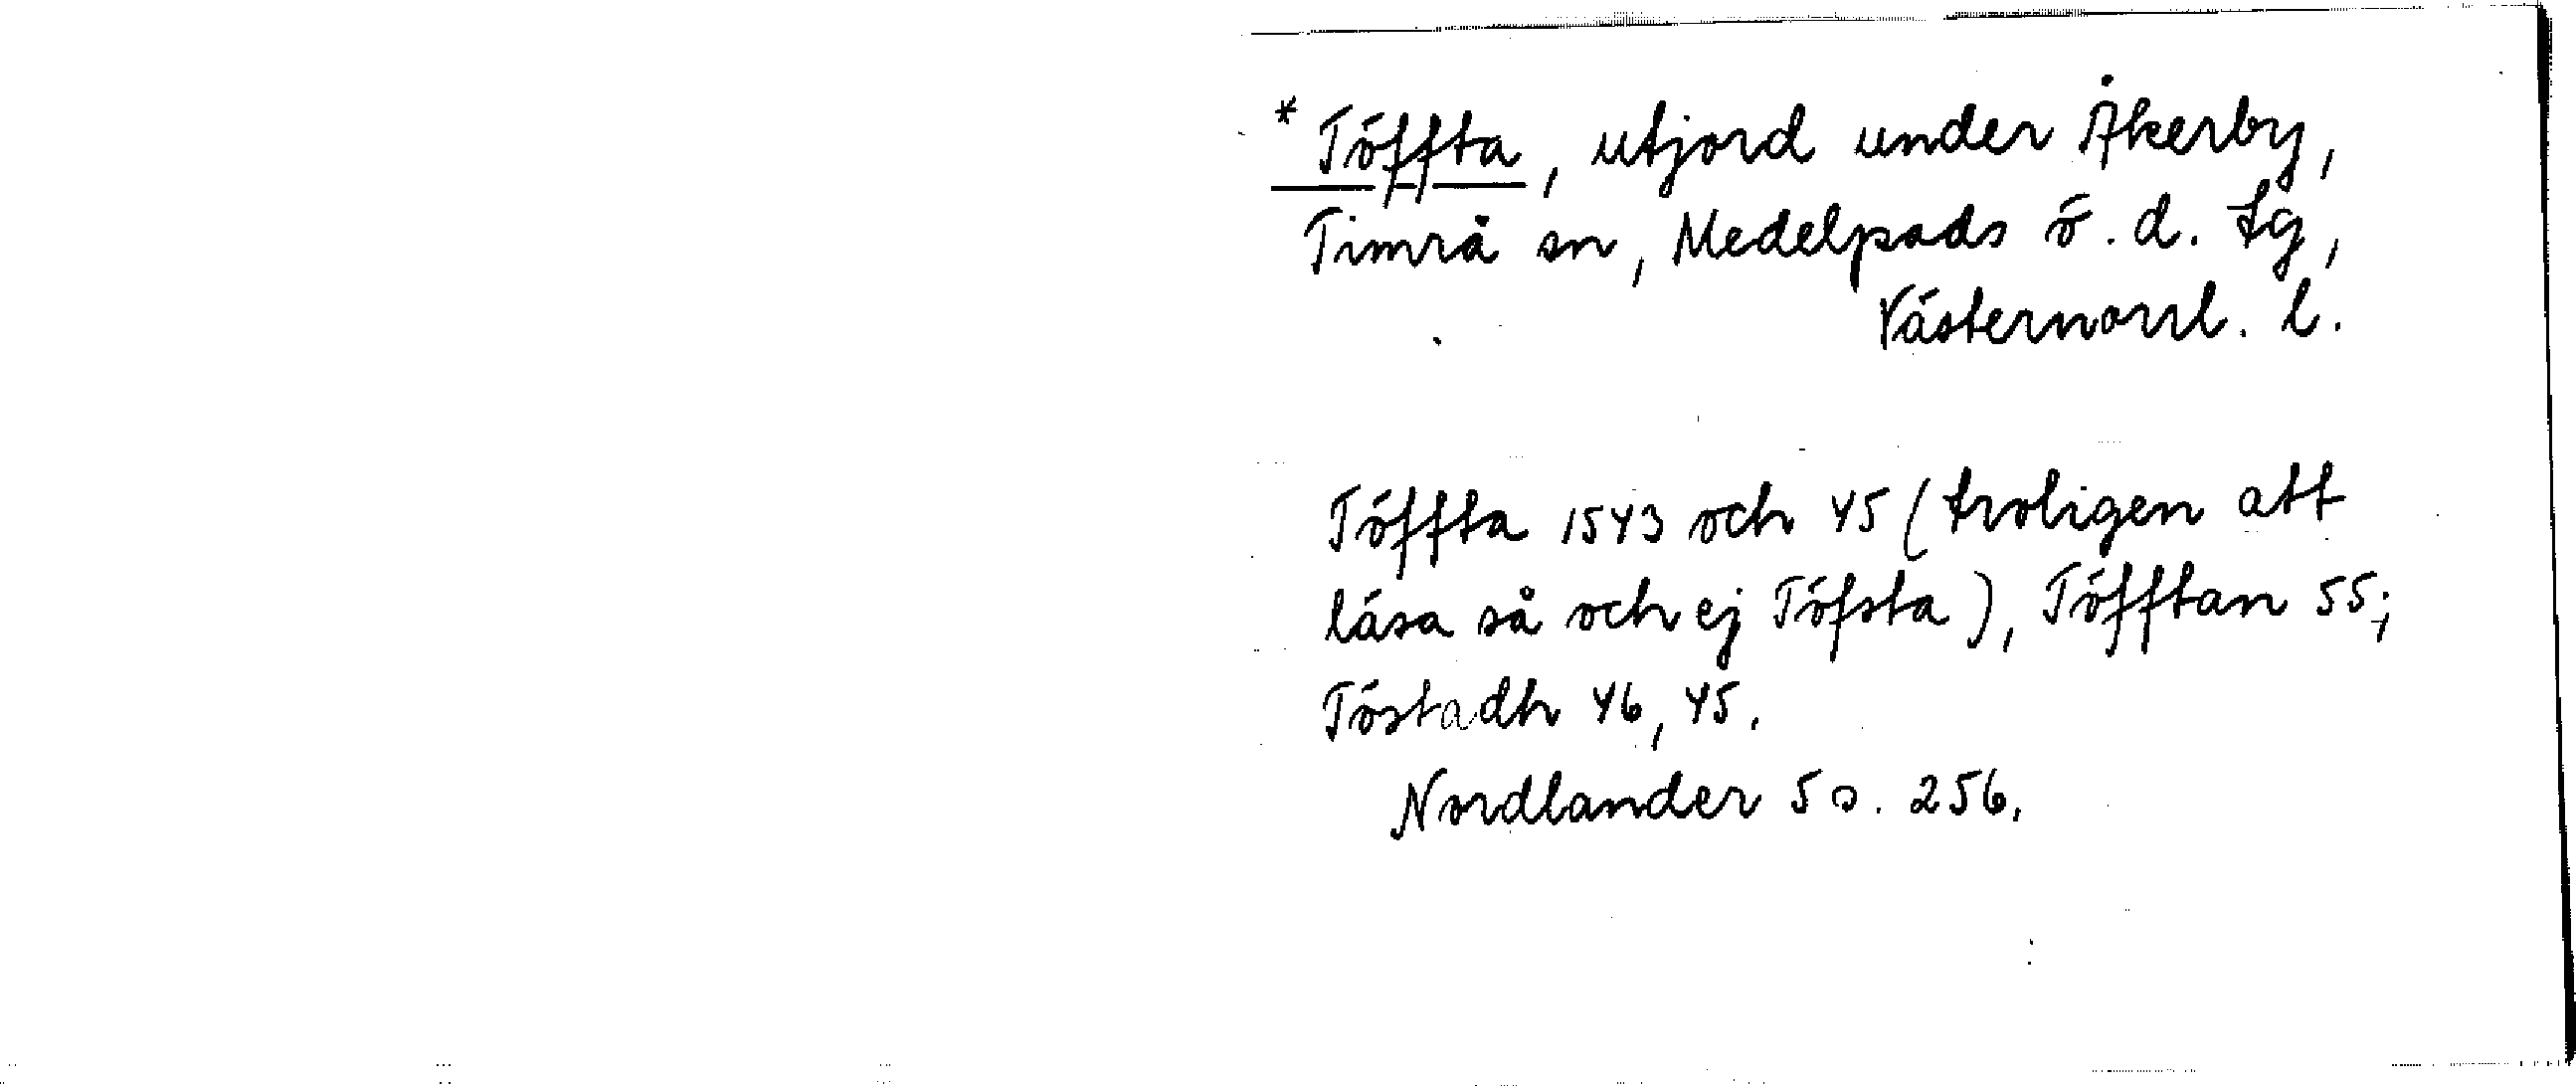 * Töffta, utjord under Åkerby,
Timrå sn, Medelpads ö. d. tg,
Västernorrl. l.
Töffta 1543 och 45 (troligen att
läsa så och ej Töfsta), Töfftan 55;
Töstadh 46, 45.
Nordlander 5 s. 256.